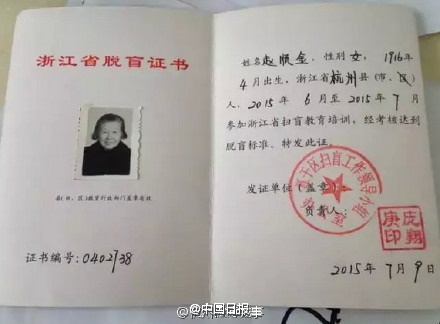 浙江省脱盲证书
县(市、区)教育行政部门盖章有效
证书编号:0402738
姓名赵顺金,性别女,1916年
4月出生,浙江省杭州县(市、区)
人,2015年6月至2015年7月
参加浙江省扫盲教育培训,经考核达到
脱盲标准。特发此证。
发证单位(盖章):
干区扫盲工作领导小组
负责人:
2015年7月9日
@中国日报